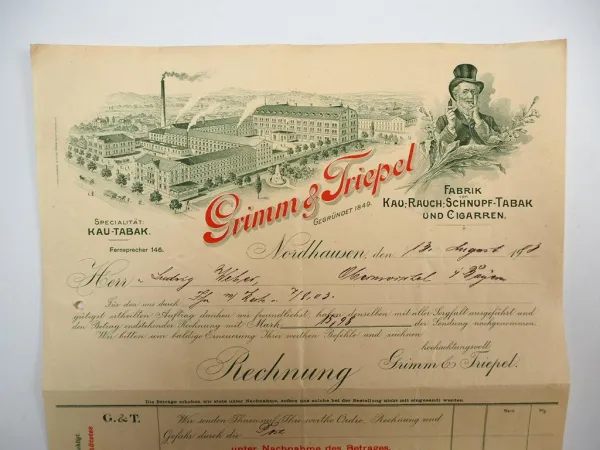 Grimm & Triepel
GEGRÜNDET 1849.
SPECIALITÄT:
KAU-TABAK.
Fernsprecher 146.
FABRIK
VON
KAU-RAUCH-SCHNUPF-TABAK
UND CIGARREN.
Nordhausen, den 13. August
Herr Ludwig Weber,
Für den uns durch
gütigst ertheilten Auftrag danken wir freundlichst haben denselben mit aller Sorgfalt ausgeführt und
den Betrag untenstehender Rechnung mit Mark 15,98 der Sendung nachgenommen.
Wir bitten um baldige Erneuerung Ihrer werthen Befehle und zeichnen
hochachtungsvoll
Grimm & Triepel.
Rechnung
Die Beträge erheben wir stets unter Nachnahme, sofern uns solche bei der Bestellung nicht mit eingesandt werden.
G. & T.
Wir senden Ihnen auf Ihre werthe Ordre, Rechnung und
Gefahr durch die Post
unter Nachnahme des Betrages.
Mark
Pfg.